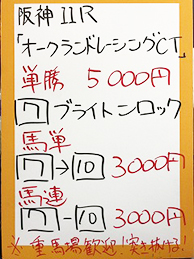 阪神11R
「オークランドレーシングCT」
単勝 5000円
7 ブライトンロック
馬単
7→10 3000円
馬連
7-10 3000円
※重馬場歓迎!突き抜ける!